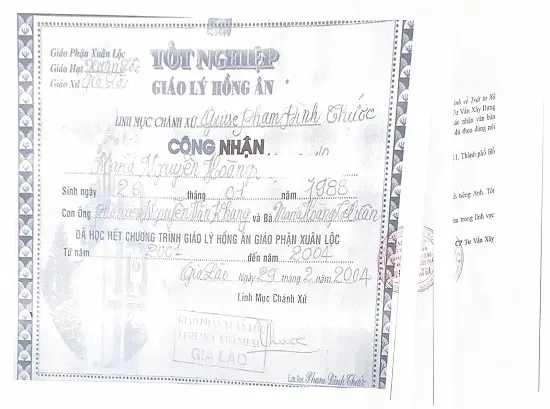 Giáo Phận Xuân Lộc
Giáo Hạt Xuân Lộc
Giáo Xứ Gia Lào
TỐT NGHIỆP
GIÁO LÝ HỒNG ÂN
LINH MỤC CHÁNH XỨ Giuse Phạm Đình Thước
CÔNG NHẬN
Maria Nguyễn Hoàng
Sinh ngày 26 tháng 01 năm 1988
Con Ông Nguyễn Văn Khang và Bà Maria Hoàng
ĐÃ HỌC HẾT CHƯƠNG TRÌNH GIÁO LÝ HỒNG ÂN GIÁO PHẬN XUÂN LỘC
Từ năm 2001 đến năm 2004
Gia Lào Ngày 29 tháng 2 năm 2004
Linh Mục Chánh Xứ
GIÁO PHẬN XUÂN LỘC
LINH MỤC CHÁNH XỨ
GIA LÀO
Phạm Đình Thước
về Trật tự Xã
Tư Vấn Xây Dựng
nhân văn bản
đã theo đúng nội
1, Thành phố Hồ
tiếng Anh. Tốt
trong lĩnh vực
CP Tư Vấn Xây